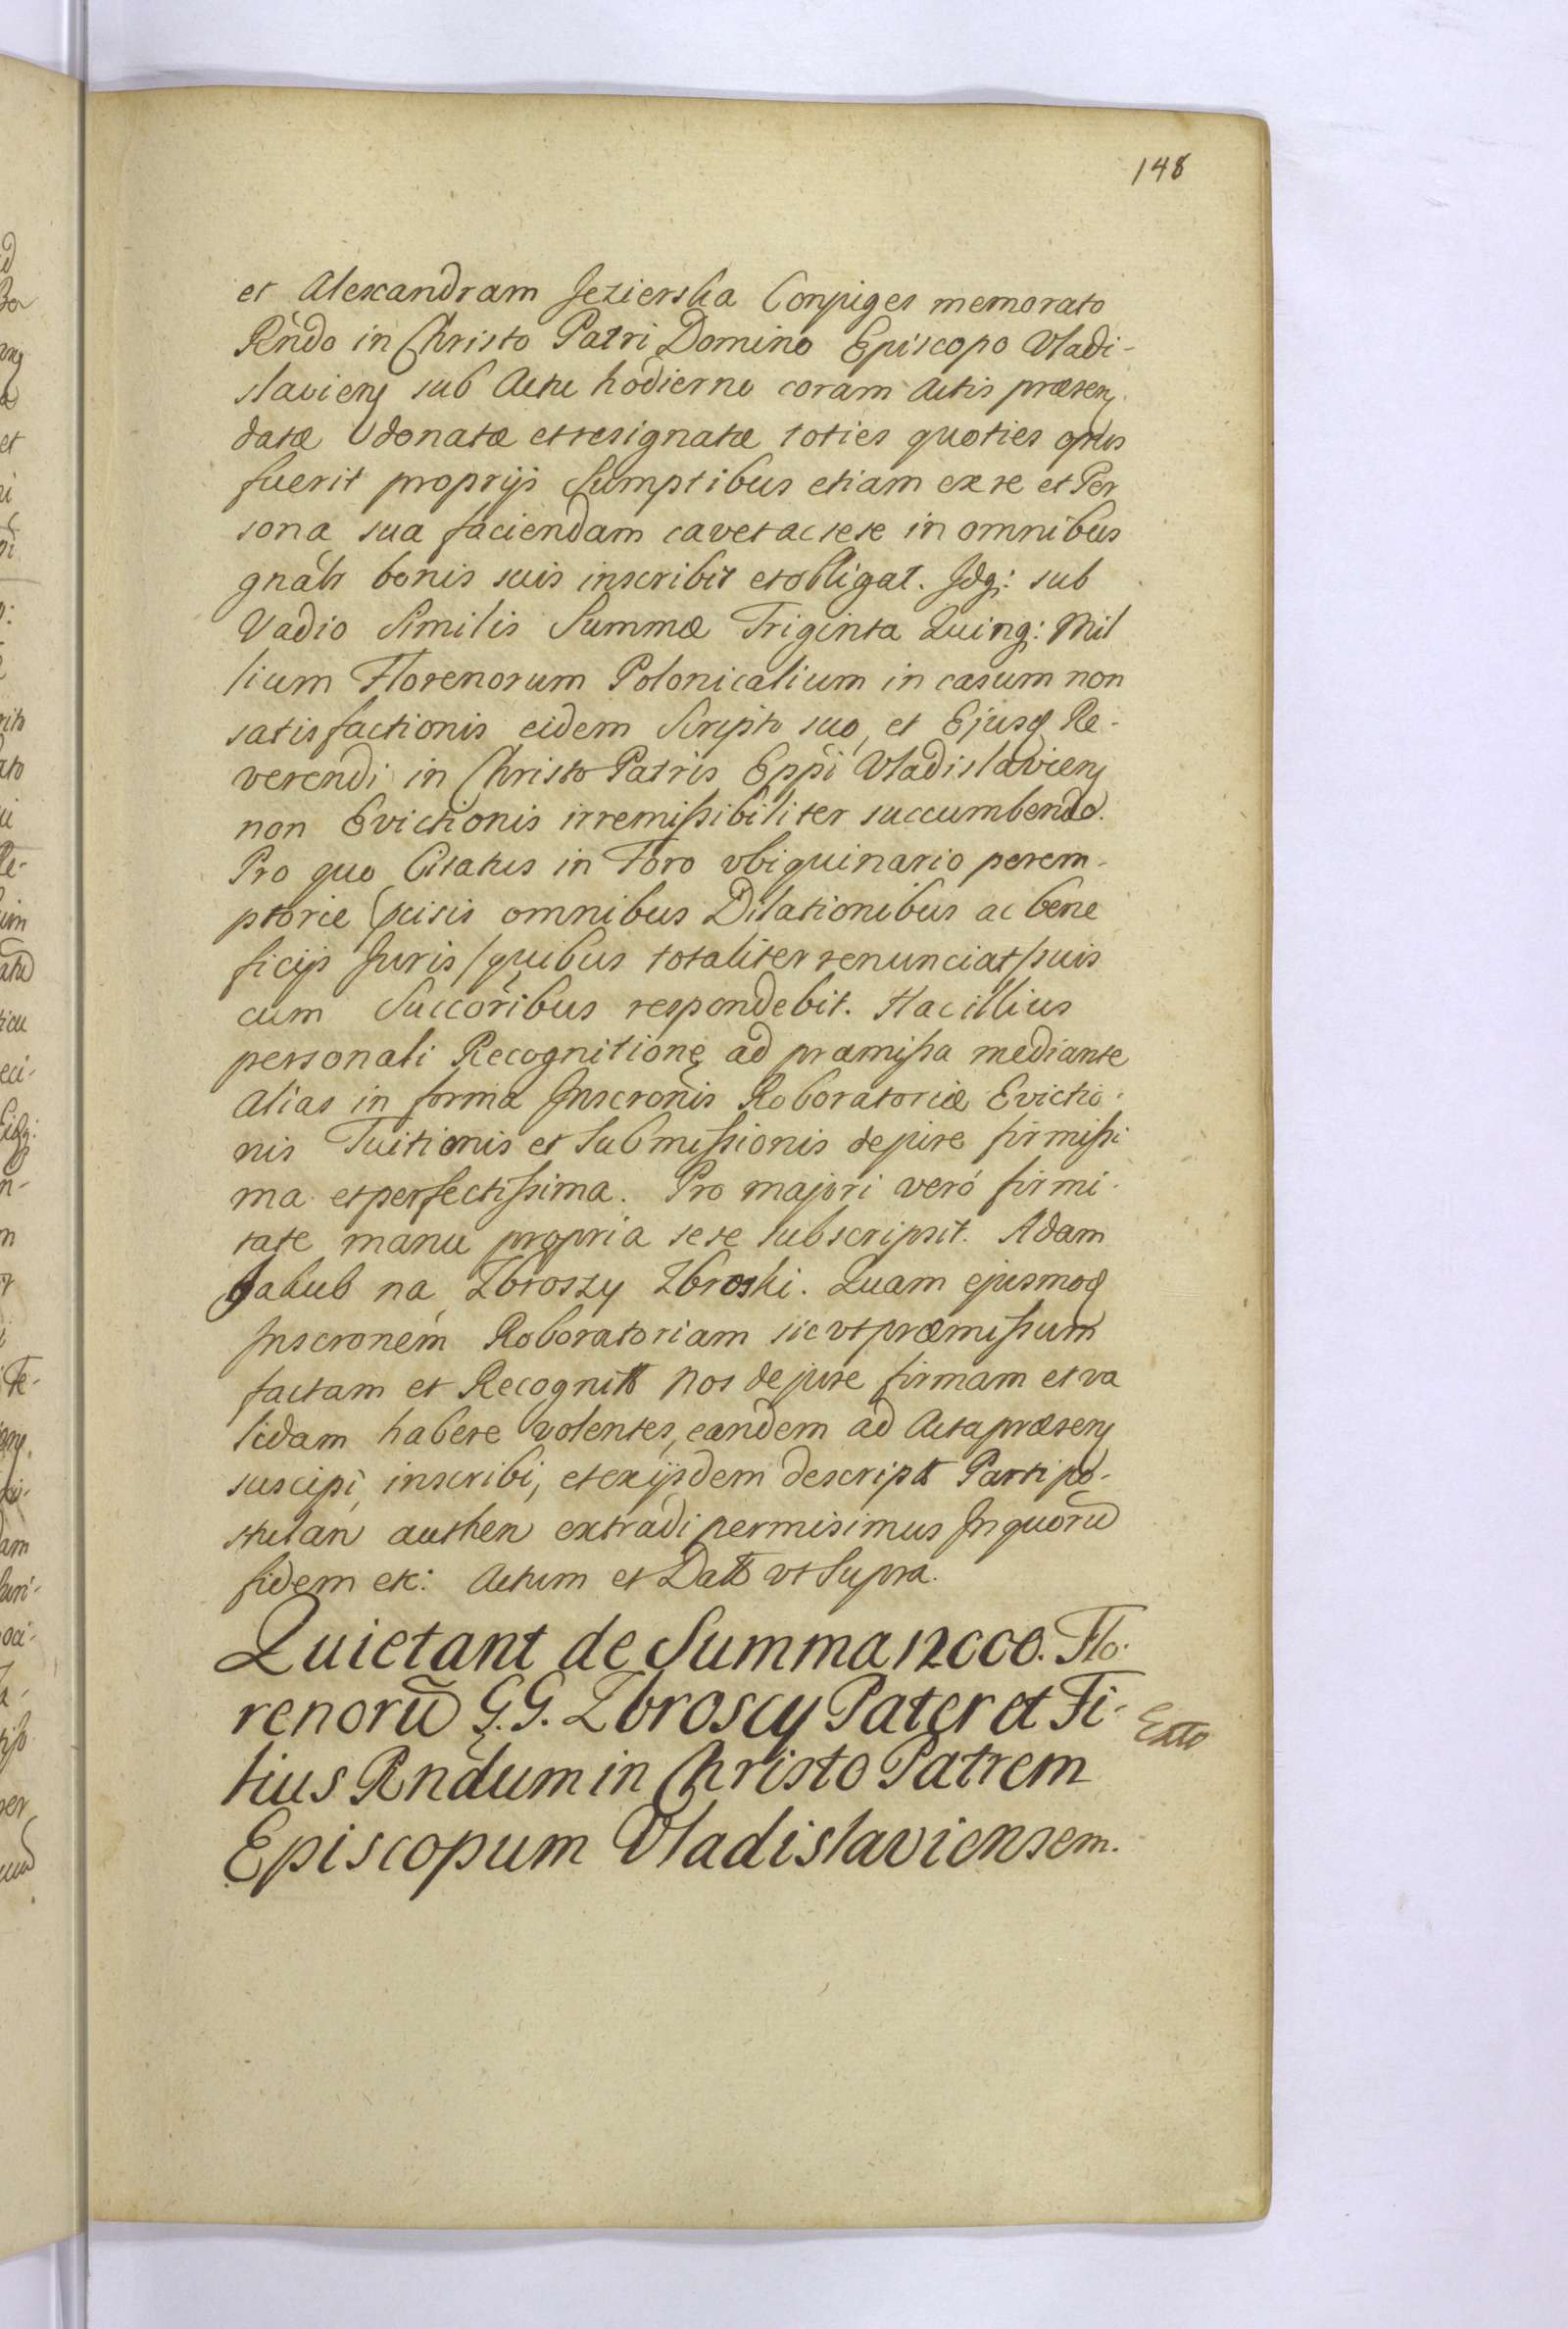 148
et Alexandram Jezierska Conjuges memorato
Rñdo in Christo Patri Domino Episcopo Vladi-
slavieñ sub Actu hodierno coram Actis præseñ
datæ donatæ et resignatæ toties quoties opus
fuerit proprijs Sumptibus etiam ex re et Per
sona sua faciendam cavet ac sese in omnibus
gnãlr bonis suis inscribit et obligat. Idq; sub
Vadio Similis Summæ Triginta Quinq; Mil
lium Florenorum Polonicalium in casum non
satisfactionis eidem Scripto suo, et Ejusd Re-
verendi in Christo Patris Eppi Vladislavieñ
non Evictionis irremissibiliter succumbendo.
Pro quo Citatus in Foro vbiquinario perem-
ptorie scisis omnibus Dilationibus ac bene
ficijs Juris /quibus totaliter renunciat/ suis
cum Succoribus respondebit. Hac illius
personali Recognitione ad præmissa mediante
Alias in forma Inscronis Roboratoriæ Evictio-
nis Tuitionis et Submissionis de jure firmissi
ma et perfectissima. Pro majori veró firmi-
tate manu propria sese subscripsit. Adam
Jakub na Zbroszy Zbroski. Quam ejusmod
Inscronem Roboratoriam sic vt præmissum
factam et Recognitt Nos de jure firmam et va
lidam habere volentes, eandem ad Acta præseñ
suscipi, inscribi, et ex ijsdem descriptt Parti po-
stulan authen extradi permisimus In quorũ
fidem etc: Actum et Datt vt Supra.
Quietant de Summa 12000. Flo-
renorũ G.G. Zbroscy Pater et Fi-
lius Rñdum in Christo Patrem
Episcopum Vladislaviensem.